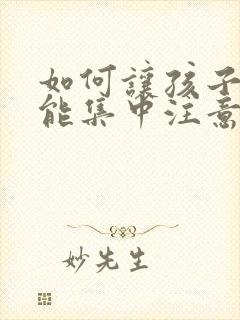 如何讓孩子
能集中注意
妙先生